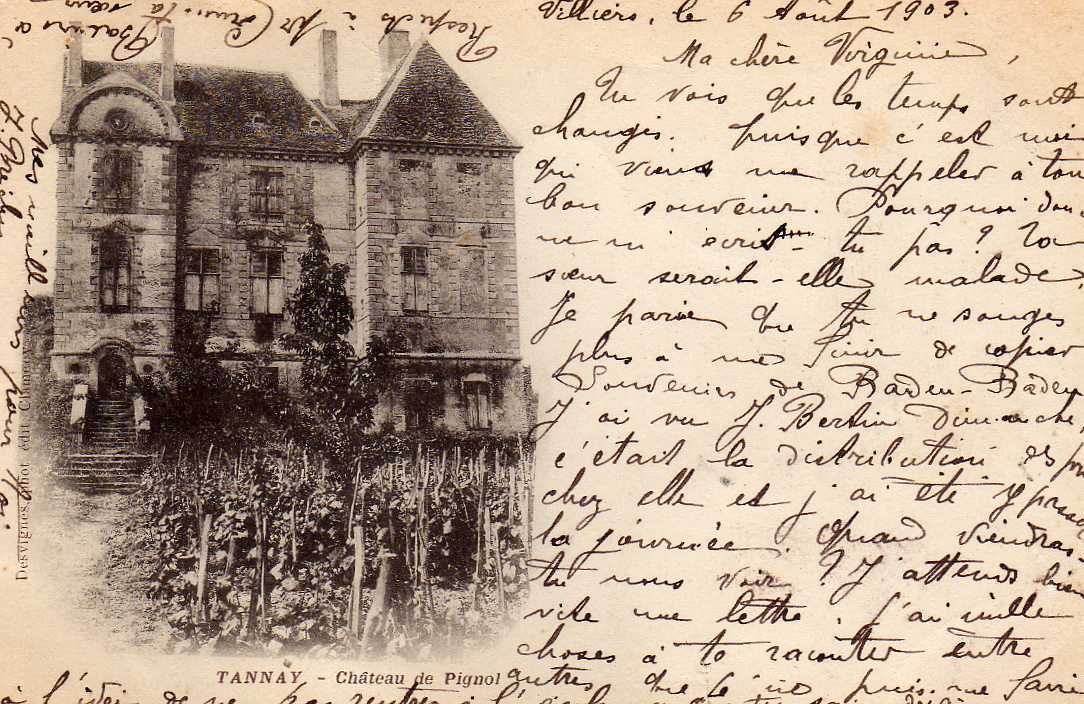 Villiers, le 6 Août 1903.
Ma chère Virginie,
Tu vois que les temps sont
changés. puisque c'est moi
qui viens me rappeler à ton
bon souvenir. Pourquoi donc
ne m'écris tu pas? Ta
sœur serait-elle malade,
Je parie que tu ne songes
plus à me finir de copier
Souvenirs de Baden-Baden
J'ai vu J. Bertin Dimanche,
c'était la distribution des
chez elle et j'ai été y
la journée. Quand viendras
tu nous voir? J'attends bien
vite une lettre. J'ai mille
choses à te raconter entre
autres que je ne puis me faire
à l'idée de ne pas rentrer à l'
Mes meilleurs pour toi
Respects à
ta sœur
Baisers à
Desvignes, phot. édit. Clamecy
TANNAY. - Château de Pignol